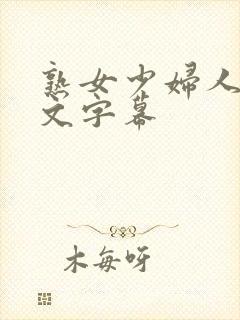 熟女少婦人
文字幕
木每呀